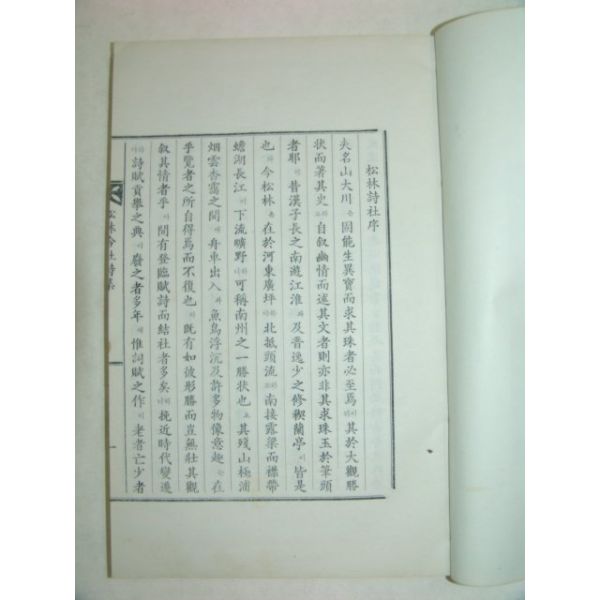 松林詩社序
夫名山大川은固能生異寶而求其珠者必至焉어니其於大觀勝
状而著其史고自叙幽情而述其文者則亦非其求珠玉於筆頭
者耶아昔漢子長之南遊江淮와及晋逸少之修禊蘭亭이皆是
也라今松林은在於河東廣坪니北抵頭流고南接露梁而襟帶
蟾湖長江이下流曠野니可稱南州之一勝状也요其殘山極浦
烟雲杳靄之間에舟車出入과魚鳥浮沉及許多物像意趣는在
乎覽者之所自得焉而不復也라既有如彼形勝而豈無壯其觀
叙其情者乎아間有登臨賦詩而結社者多矣니挽近時代變遷
야詩賦貢擧之典이廢之者多年에惟詞賦之作이老者亡少者
松林吟社詩集
一